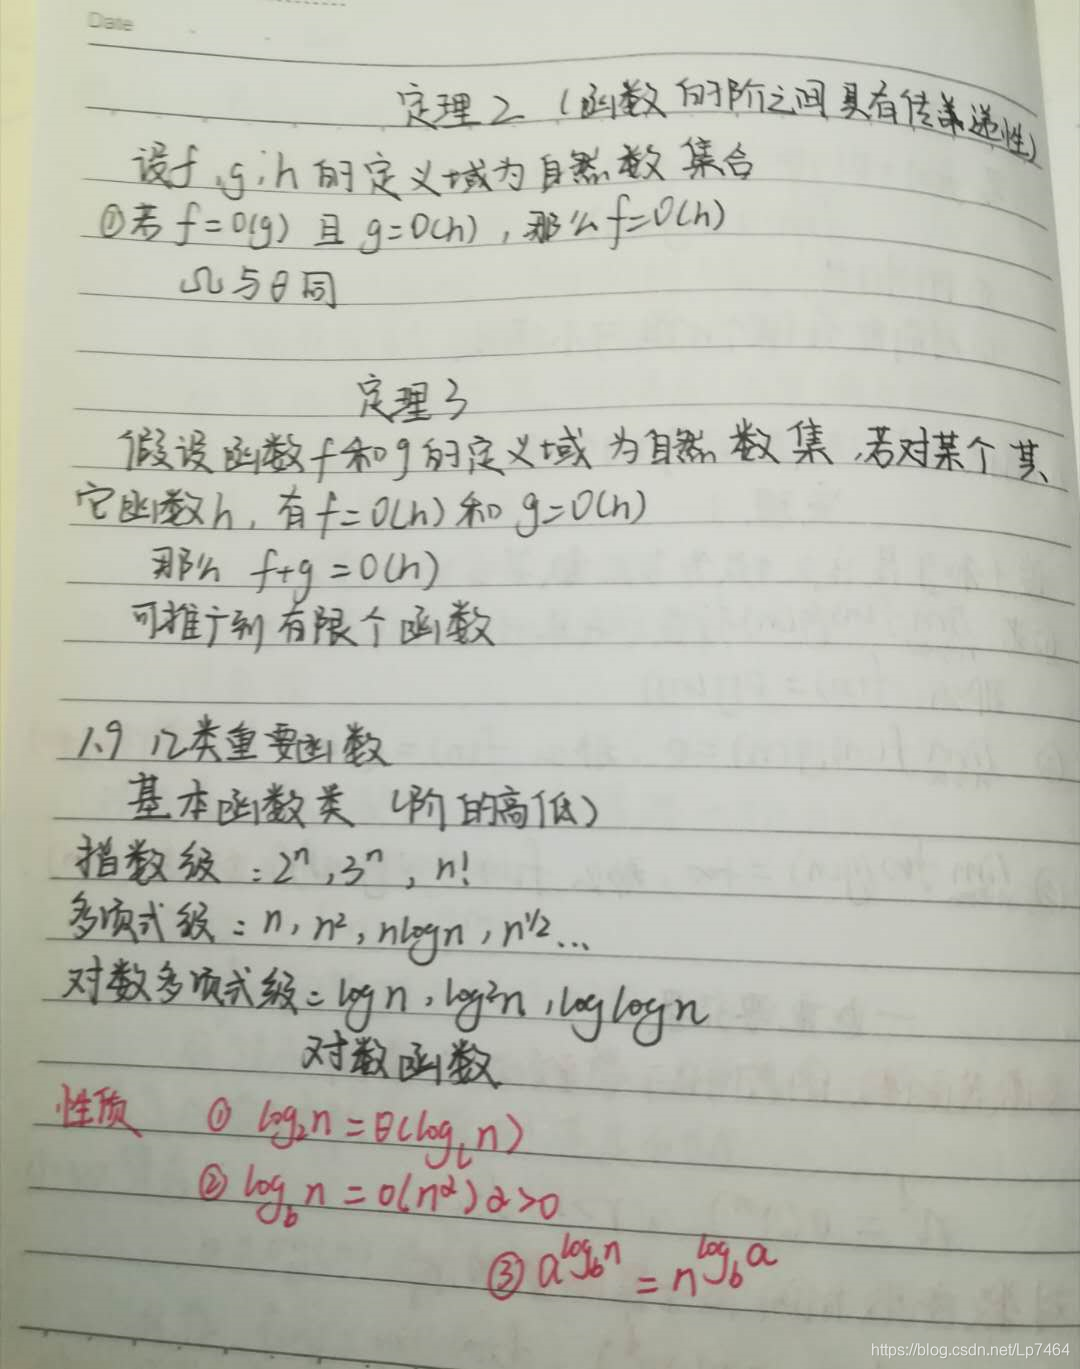 Date
定理2 (函数的阶之间具有传递性)
设f,g,h的定义域为自然数集合
①若f=O(g) 且 g=O(h),那么f=O(h)
Ω与θ同
定理3
假设函数f和g的定义域为自然数集,若对某个其
它函数h,有f=O(h)和g=O(h)
那么 f+g=O(h)
可推广到有限个函数
1.9 几类重要函数
基本函数类 (阶的高低)
指数级:2ⁿ,3ⁿ,n!
多项式级:n,n²,nlogn,n^1/2...
对数多项式级:logn,log²n,loglogn
对数函数
性质 ① log₂n=θ(log_l n)
② log_b n=o(n^α) α>0
③ a^{log_b n} = n^{log_b a}
https://blog.csdn.net/Lp7464